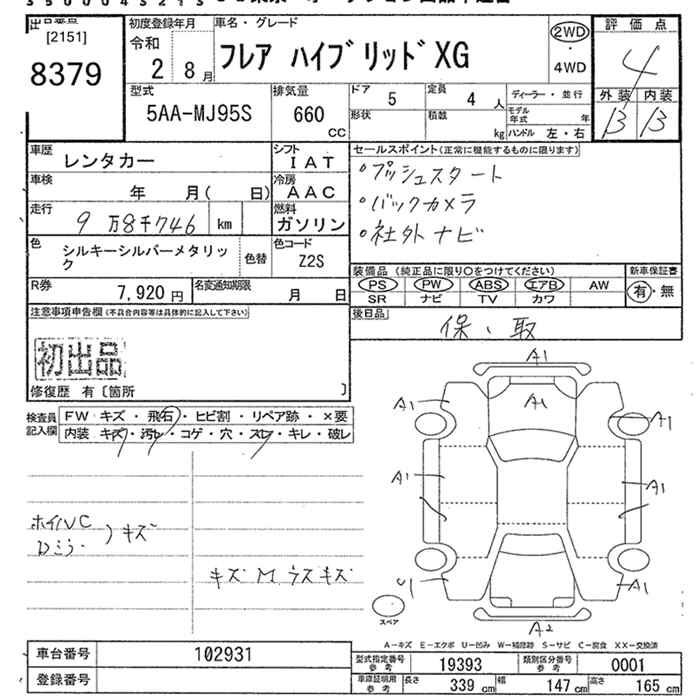 出品番号
[2151]
8379
初度登録年月
令和
2 8月
車名・グレード
フレア ハイブリッド XG
2WD
・
4WD
評価点
4
外装 内装
B B
型式
5AA-MJ95S
排気量
660
CC
ドア 5
定員 4 人
形状
積載 kg
ディーラー・並行
モデル年式 年
ハンドル 左・右
車歴
レンタカー
シフト
IAT
車検 年 月( 日)
冷房
AAC
走行
9万8千746 km
燃料
ガソリン
色
シルキーシルバーメタリック
色替
色コード
Z2S
R券
7,920円
名変通知期限
月 日
セールスポイント(正常に機能するものに限ります)
・プッシュスタート
・バックカメラ
・社外ナビ
装備品(純正品に限り○をつけてください)
PS PW ABS エアB AW
SR ナビ TV カワ
新車保証書
有・無
後日品
保、取
注意事項申告欄(不具合内容等は具体的に記入して下さい)
初出品
修復歴 有〔箇所 〕
検査員
記入欄
FW キズ・飛石・ヒビ割・リペア跡・×要
内装 キズ・汚レ・コゲ・穴・スレ・キレ・破レ
ホイルC
Dミラー
)キズ
キズM ラスキズ
A1
A1
A1
A1
A1
A1
U1
A1
A2
スペア
A-キズ E-エクボ U-凹み W-補修跡 S-サビ C-腐食 XX-交換済
車台番号
102931
登録番号
型式指定番号
参考
19393
類別区分番号
参考
0001
車庫証明用
参考
長さ 339 cm
幅 147 cm
高さ 165 cm